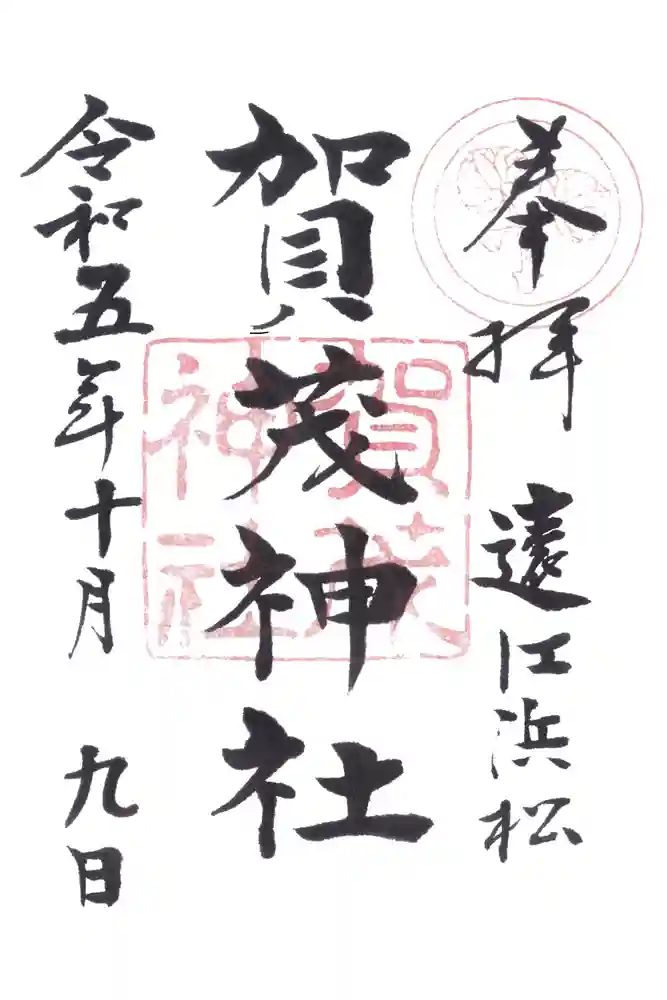 奉拝 遠江浜松
賀茂神社
賀茂神社
令和五年十月 九日